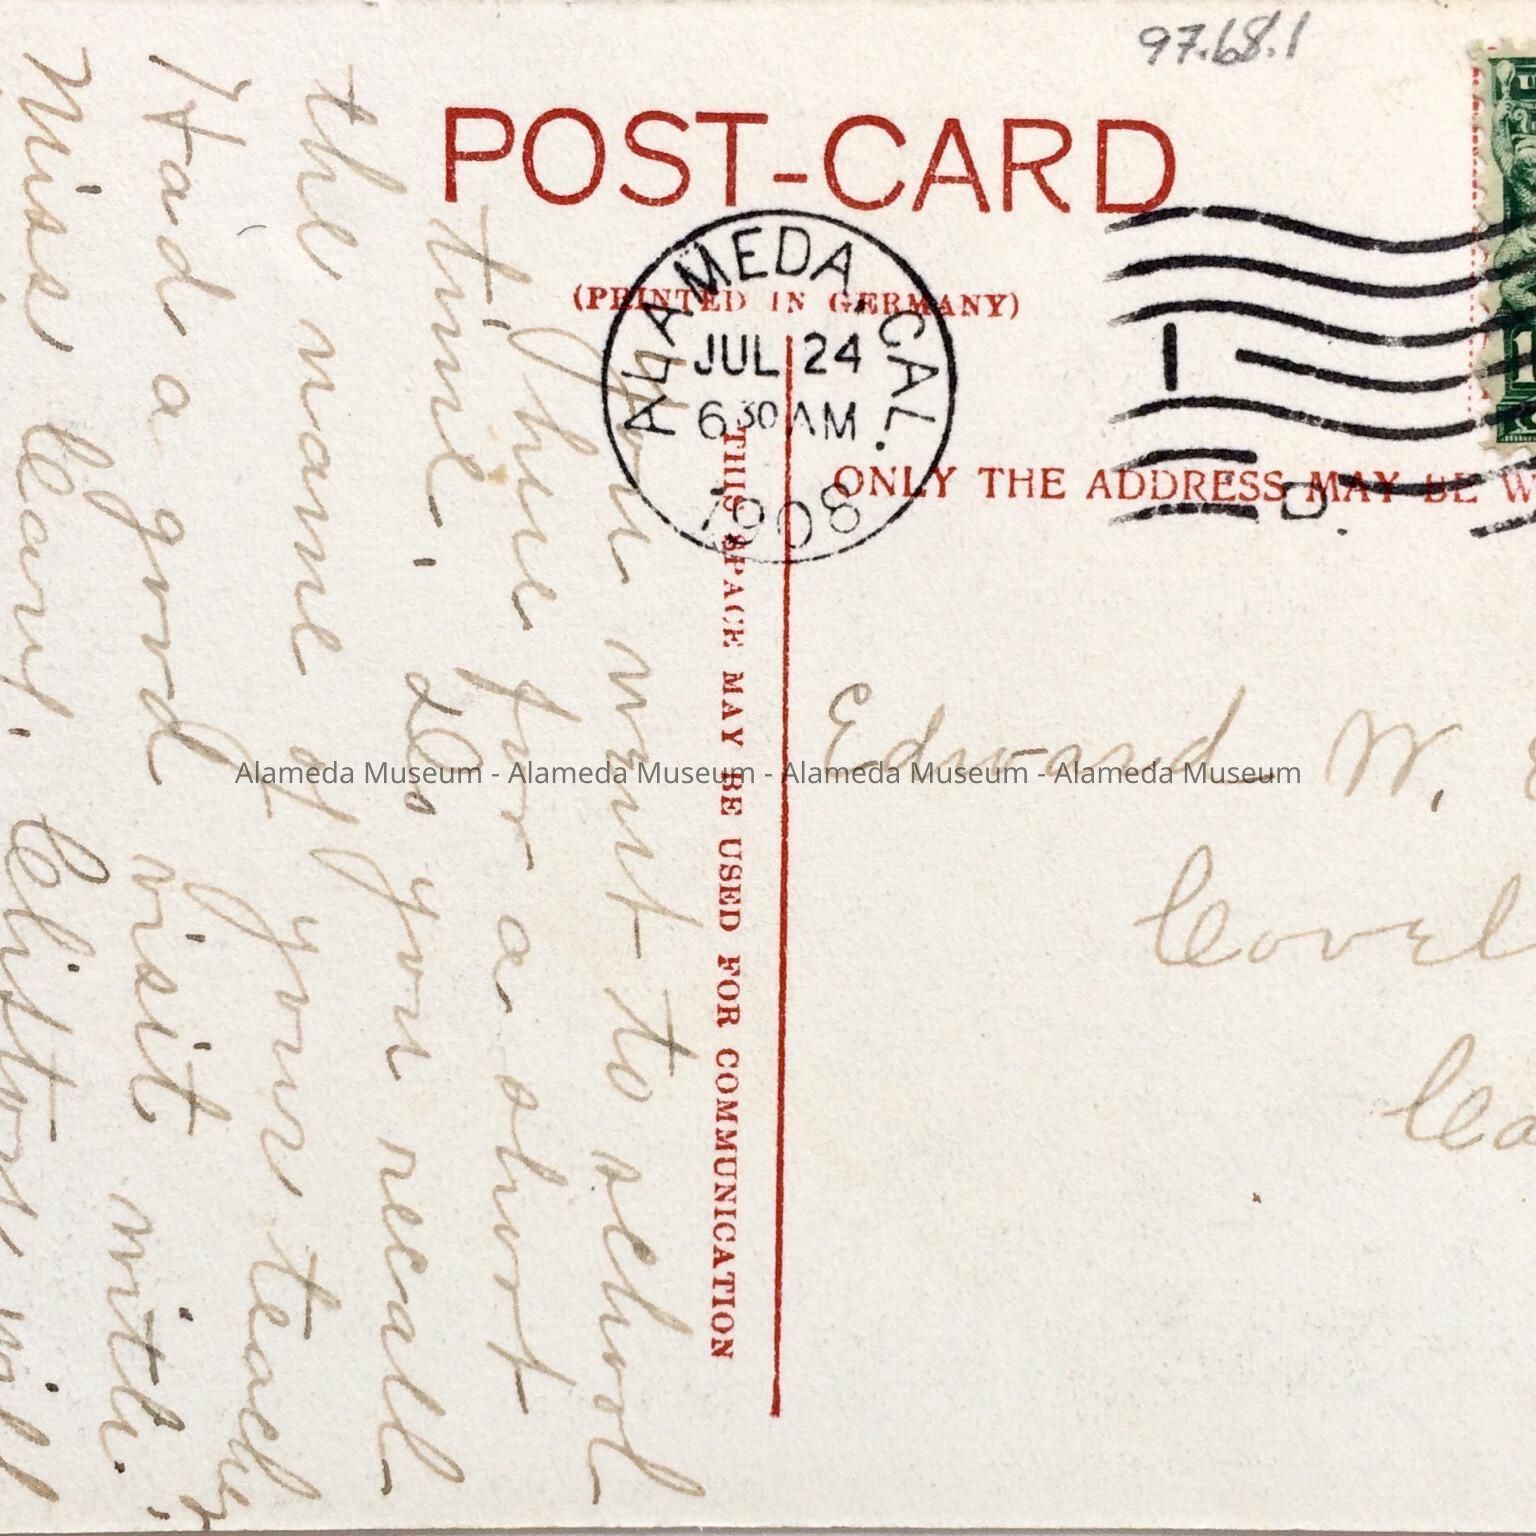 97.68.1
POST-CARD
(PRINTED IN GERMANY)
ALAMEDA, CAL.
JUL 24
6 30 AM
1908
1
D.
THIS SPACE MAY BE USED FOR COMMUNICATION
ONLY THE ADDRESS MAY BE W
You went to school
here for a short
time. Do you recall
the name of your teacher
Had a good visit with
Miss Leary. Clistons will
Edward W.
Covel
Ca
Alameda Museum - Alameda Museum - Alameda Museum - Alameda Museum